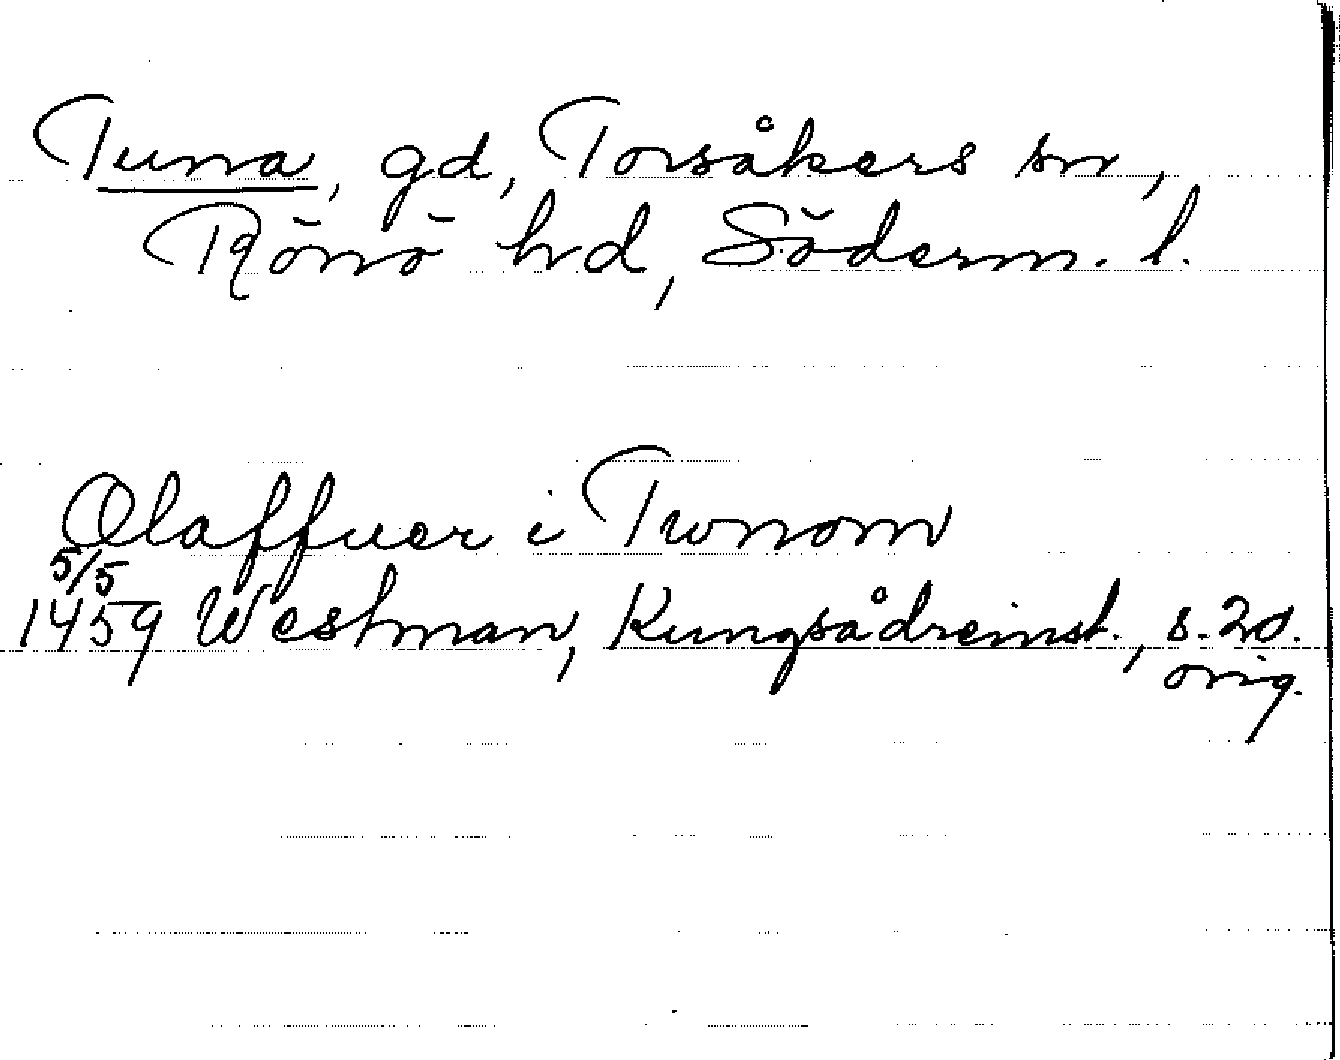 Tuna, gd, Torsåkers sn,
Rönö hd, Söderm. l.
Olaffuer i Twnom
5/5
1459 Westman, Kungsådreinst., s. 20.
orig.